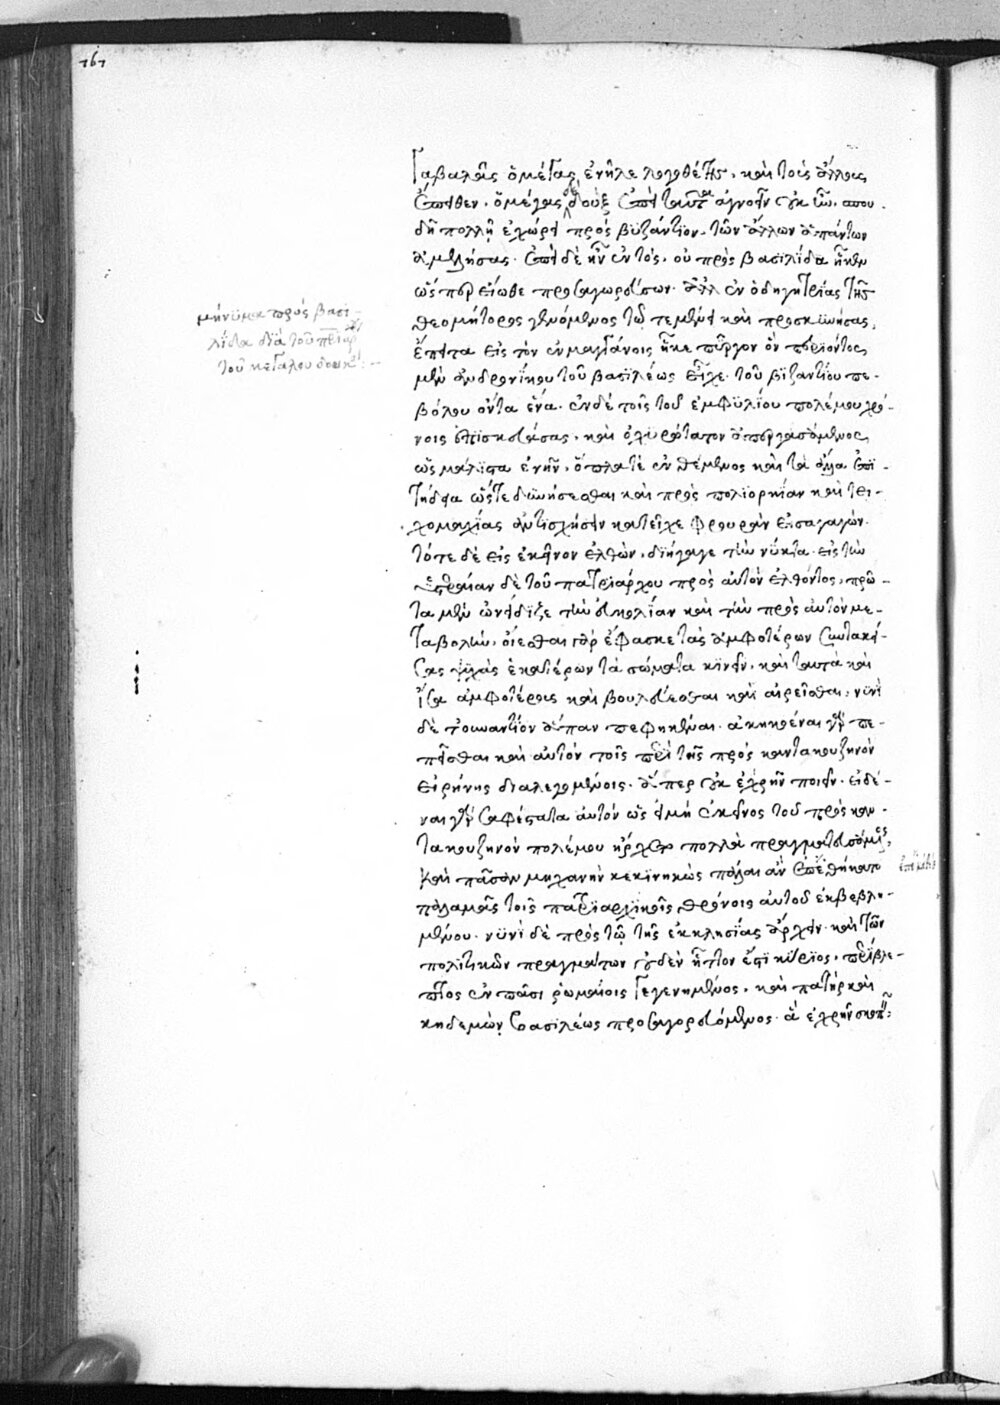 767
Γαβαλᾶς ὁ μέγας ἐνῆγε λογοθέτης, καὶ τοὺς ἄλλους
ἔπειθεν. ὁ μέγας δὲ δοὺξ ἐπεὶ ταῦτα ἀγνοεῖν οὐκ ἦν, σπου
δῇ πολλῇ ἐχώρει πρὸς βυζάντιον. τῶν ἄλλων ἁπάντων
ἀμελήσας. ἐπεὶ δὲ ἦν ἐντὸς, οὐ πρὸς βασιλίδα ἧκεν
ὥσπερ εἰώθει προσαγορεύσων. ἀλλ' ἐν ὁδηγητρίας τῆς
θεομήτορος γενόμενος τῷ τεμένει καὶ προσκυνήσας,
ἔπειτα εἰς τὸν ἐν μαγγάνοις ἧκε πύργον ὃν περιόντος
μὲν ἀνδρονίκου τοῦ βασιλέως εἶχε. τοῦ βυζαντίου πε-
βόλου ὄντα ἕνα. ἐν δὲ τοῖς τοῦ ἐμφυλίου πολέμου χρό-
νοις ἐπισκευάσας, καὶ ὀχυρώτατον ἀπεργασάμενος,
ὡς μάλιστα ἐνῆν, ὅπλα τὲ ἐνθέμενος καὶ τὰ ἄλλα ἐπι-
τήδεια ὥστε δυνήσεσθαι καὶ πρὸς πολιορκίαν καὶ τει-
χομαχίας ἀντισχήσειν κατεῖχε φρουρὰν εἰσαγαγών.
τότε δὲ εἰς ἐκεῖνον ἐλθὼν, διήγαγε τὴν νύκτα. εἰς τὴν
ὑστεραίαν δὲ τοῦ πατριάρχου πρὸς αὐτὸν ἐλθόντος, πρῶ-
τα μὲν ὠνείδιζε τὴν εὐκολίαν καὶ τὴν πρὸς αὐτὸν με-
ταβολήν. οἴεσθαι γὰρ ἔφασκε τὰς ἀμφοτέρων συντακεί-
σας ψυχὰς ἑκατέρων τὰ σώματα κινεῖν, καὶ ταυτὰ καὶ
ἴσα ἀμφοτέροις καὶ βουλεύεσθαι καὶ αἱρεῖσθαι, νυνὶ
δὲ τοὐναντίον ἅπαν πεφηκέναι. ἀκηκοέναι γὰρ πε-
πεῖσθαι καὶ αὐτὸν τοῖς περὶ τῆς πρὸς καντακουζηνὸν
εἰρήνης διαλεγομένοις. ἅπερ οὐκ ἐχρῆν ποιεῖν. εἰδέ-
ναι γὰρ σαφέστατα αὐτὸν ὡς εἰ μὴ ἐκεῖνος τοῦ πρὸς καν-
τακουζηνὸν πολέμου ἤρχεν πολλὰ πραγματευσάμενος,
καὶ πᾶσαν μηχανὴν κεκινηκὼς πάλαι ἂν ἐπετέθη καν
παλαμᾶς τοῖς πατριαρχικοῖς θρόνοις αὐτοῦ ἐκβεβλη-
μένου. νυνὶ δὲ πρὸς τῷ τῆς ἐκκλησίας ἄρχειν. καὶ τῶν
πολιτικῶν πραγμάτων οὐδὲν ἧττον ἐστὶ κύριος, περίβλε-
πτος ἐν πᾶσι ῥωμαίοις γεγενημένος, καὶ πατὴρ καὶ
κηδεμὼν βασιλέως προσαγορευόμενος. ἃ ἐχρῆν σκοπεῖν
μήνυμα πρὸς βασι-
λίδα διὰ τοῦ πατριάρχου
τοῦ μεγάλου δουκός: